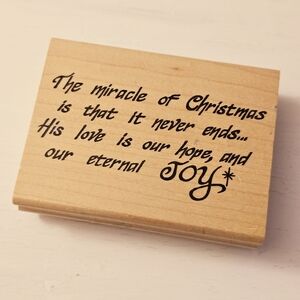 The miracle of Christmas
is that it never ends...
His love is our hope, and
our eternal JOY*